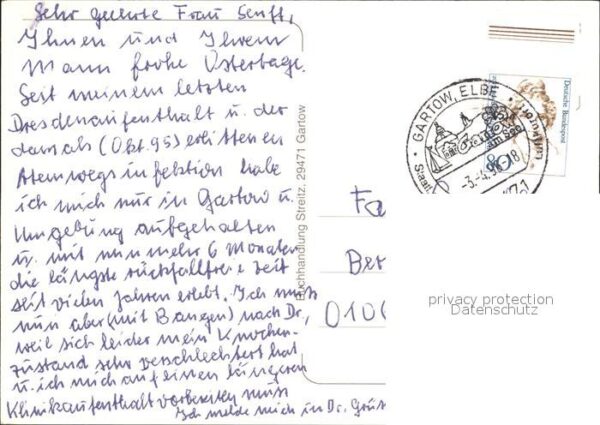 Sehr geehrte Frau Senft,
Ihnen und Ihrem
Mann frohe Ostertage.
Seit meinem letzten
Dresdenaufenthalt u. der
damals (Okt. 95) erlittenen
Atemwegsinfektion habe
ich mich nur in Gartow u.
Umgebung aufgehalten
u. mit nunmehr 6 Monaten
die längste rückfallfreie Zeit
seit vielen Jahren erlebt. Ich muss
nun aber (mit Bangen) nach Dr,
weil sich leider mein Knochen-
zustand sehr verschlechtert hat
u. ich mich auf einen längeren
Klinikaufenthalt vorbereiten muss
Ich melde mich in Dr.
Buchhandlung Streitz, 29471 Gartow
GARTOW, ELBE
am See
-3.-4.96-18
Deutsche Bundespost
80
Fa
Ber
0100
privacy protection
Datenschutz